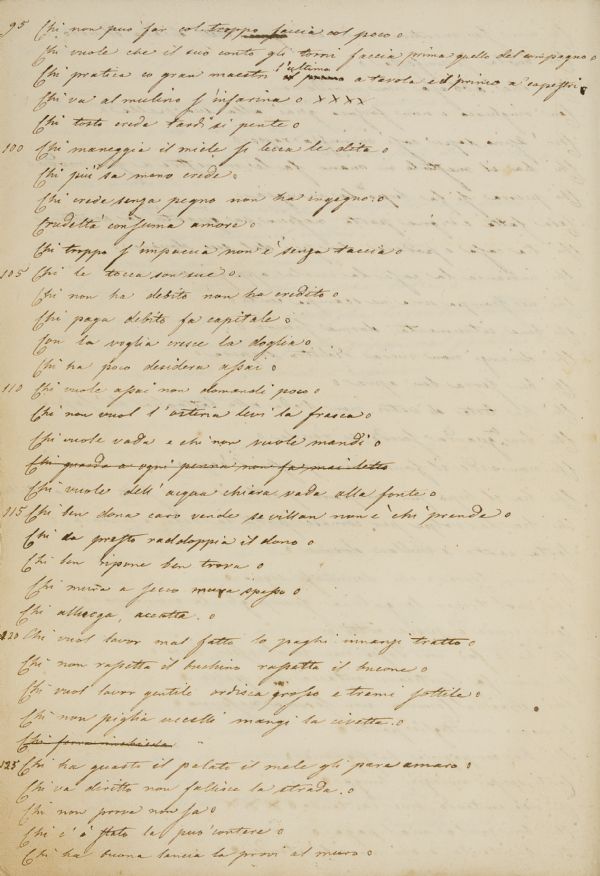 95 Chi non può far col troppo faccia col poco
Chi vuole che il suo conto gli torni faccia prima quello del compagno
Chi pratica co gran maestri l'ultimo a tavola e il primo a capestri
Chi va al mulino s'infarina xxxx
Chi tosto creda tardi si pente
100 Chi maneggia il miele si lecca le dita
Chi più sa meno crede
Chi crede senza pegno non ha ingegno
Crudeltà consuma amore
Chi troppo s'impaccia non è senza taccia
105 Chi le tocca son sue
Chi non ha debito non ha credito
Chi paga debito fa capitale
Con la voglia cresce la doglia
Chi ha poco desidera assai
110 Chi vuole assai non domandi poco
Chi non vuol l'osteria levi la frasca
Chi vuole vada e chi non vuole mandi
Chi guarda a ogni penna non fa mai letto
Chi vuole dell'acqua chiara vada alla fonte
115 Chi ben dona caro vende se villan non è chi prende
Chi da presto raddoppia il dono
Chi ben ripone ben trova
Chi mura a secco mura spesso
Chi alberga, accatta.
120 Chi vuol lavor mal fatto lo paghi innanzi tratto
Chi non rassetta il buchino rassetta il bucone
Chi vuol lavor gentile ordisca grosso e trami sottile
Chi non piglia uccelli mangi la civetta.
Chi
125 Chi ha guasto il palato il mele gli pare amaro
Chi va diritto non fallisce la strada.
Chi non prova non sa
Chi c'è stato la può contare
Chi ha buona lancia la provi al muro